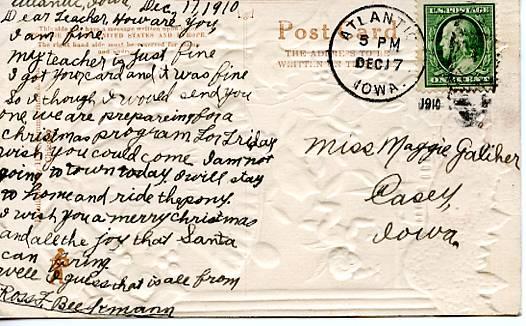 Atlantic, Iowa, Dec, 17, 1910.
Dear Teacher, How are you,
I am fine.
My teacher is just fine
I got your card and it was fine
So I though I would send you
one we are prepareing for a
christmas program for Friday
wish you could come I am not
going to town today. I will stay
to home and ride the pony.
I wish you a merry christmas
and all the joy that Santa
can bring
well I guess that is all from
Ross F Beekmann
This side may have a message written upon it
UNITED STATES AND EUROPE.
The right hand side must be reserved for
Postcard
THE ADDRESS TO BE
WRITTEN ON THIS
ATLANTIC
5 PM
DEC 17
IOWA.
1910
U.S. POSTAGE
ONE CENT
Miss Maggie Galliher
Casey,
Iowa.